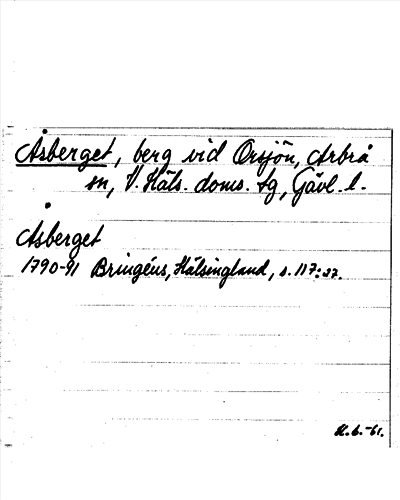 Åsberget, berg vid Orsjön, Arbrå
sn, V. Häls. doms. tg, Gävl. l.
Åsberget
1790-91 Bringéus, Hälsingland, s. 117:
-61.